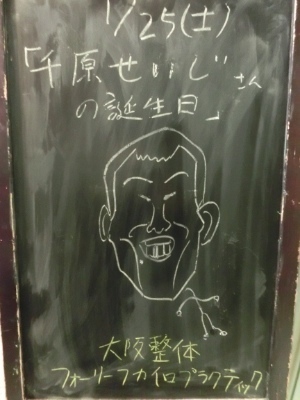 1/25(土)
「千原せいじさん
の誕生日」
大阪整体
フォーリーフカイロプラクティック